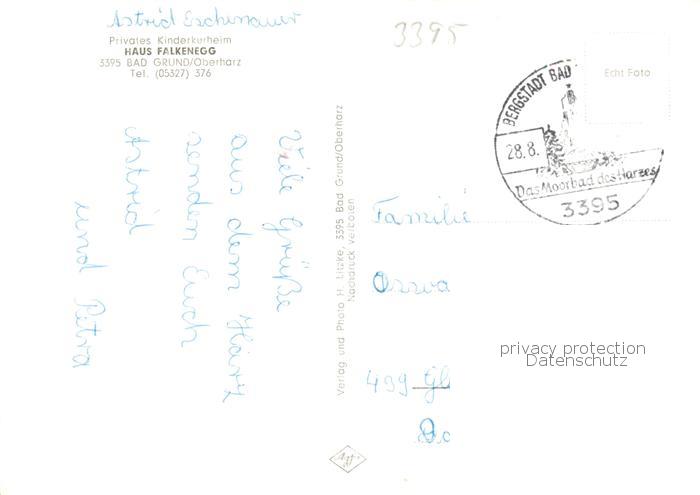 Astrid Eschenauer
Privates Kinderkurheim
HAUS FALKENEGG
3395 BAD GRUND/Oberharz
Tel. (05327) 376
3395
Viele Grüße
aus dem Harz
senden Euch
Astrid
und Petra
Verlag und Photo H. Litzke, 3395 Bad Grund/Oberharz
Nachdruck verboten
Echt Foto
BERGSTADT BAD
28.8.
Das Moorbad des Harzes
3395
Familie
499 Gl
privacy protection
Datenschutz